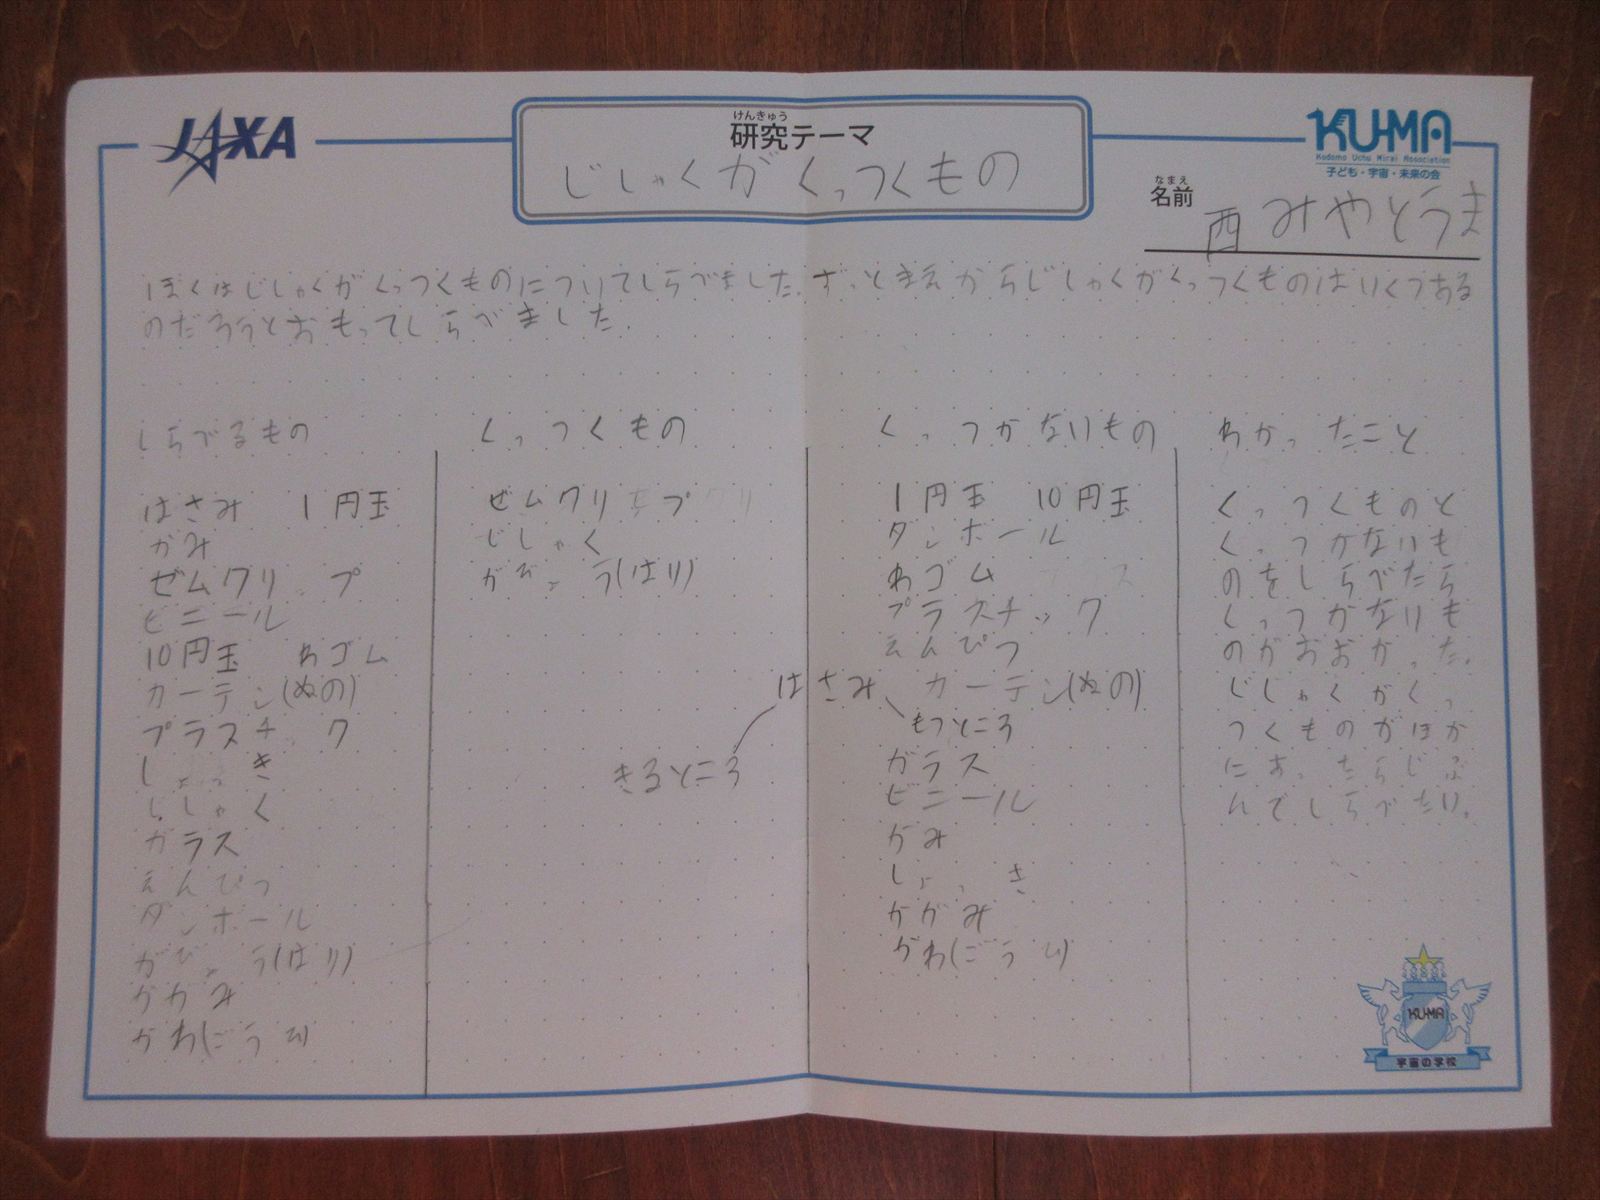 JAXA
けんきゅう
研究テーマ
じしゃくがくっつくもの
KU-MA
Kodomo Uchu Mirai Association
子ども・宇宙・未来の会
なまえ
名前
西みやとうま
ぼくはじしゃくがくっつくものについてしらべました。ずっとまえからじしゃくがくっつくものはいくつある
のだろうとおもってしらべました。
しらべるもの
はさみ 1円玉
かみ
ぜムクリップ
ビニール
10円玉 わゴム
カーテン(ぬの)
プラスチック
しょっき
じしゃく
ガラス
えんぴつ
ダンボール
がびょう(はり)
かがみ
かわ(ごうひ)
くっつくもの
ぜムクリップ
じしゃく
がびょう(はり)
きるところ
くっつかないもの
1円玉 10円玉
ダンボール
わゴム
プラスチック
えんぴつ
はさみ カーテン(ぬの)
もつところ
ガラス
ビニール
かみ
しょっき
かがみ
かわ(ごうひ)
わかったこと
くっつくものと
くっつかないも
のをしらべたら
くっつかないも
のがおおかった。
じしゃくがくっ
つくものがほか
にあったらじぶ
んでしらべたい。
KU-MA
宇宙の学校